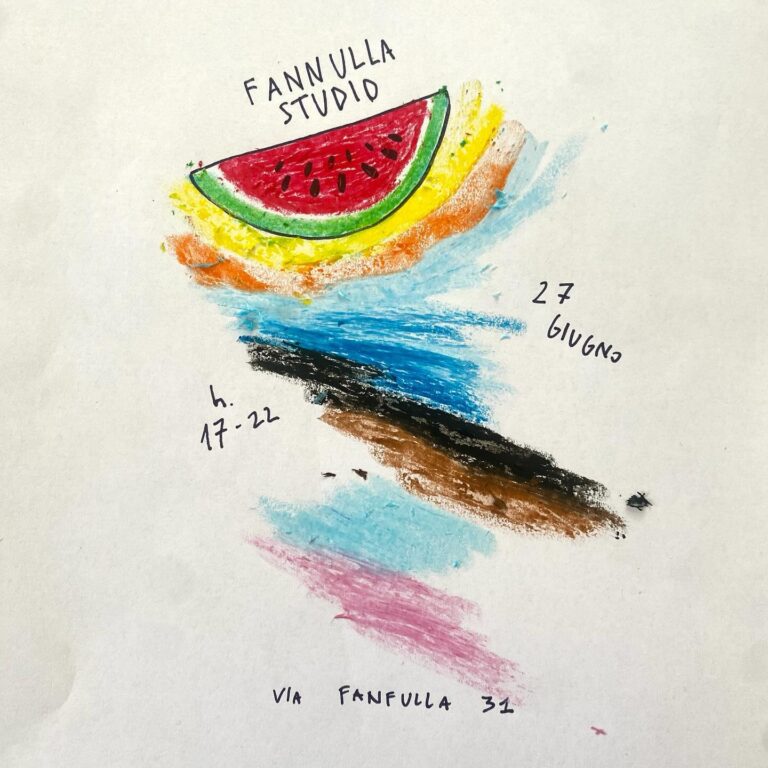 FANNULLA
STUDIO
27
GIUGNO
h.
17-22
VIA FANFULLA 31